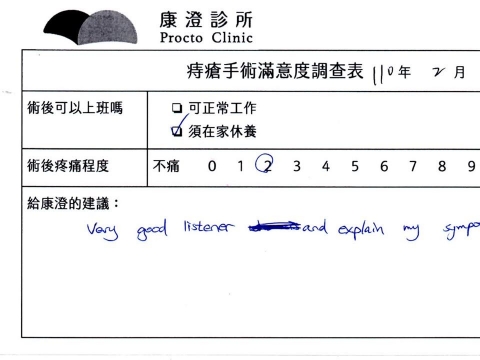 康澄診所
Procto Clinic
痔瘡手術滿意度調查表 110年 2月
術後可以上班嗎
可正常工作
須在家休養
術後疼痛程度 不痛 0 1 2 3 4 5 6 7 8 9
給康澄的建議：
Very good listener and explain my